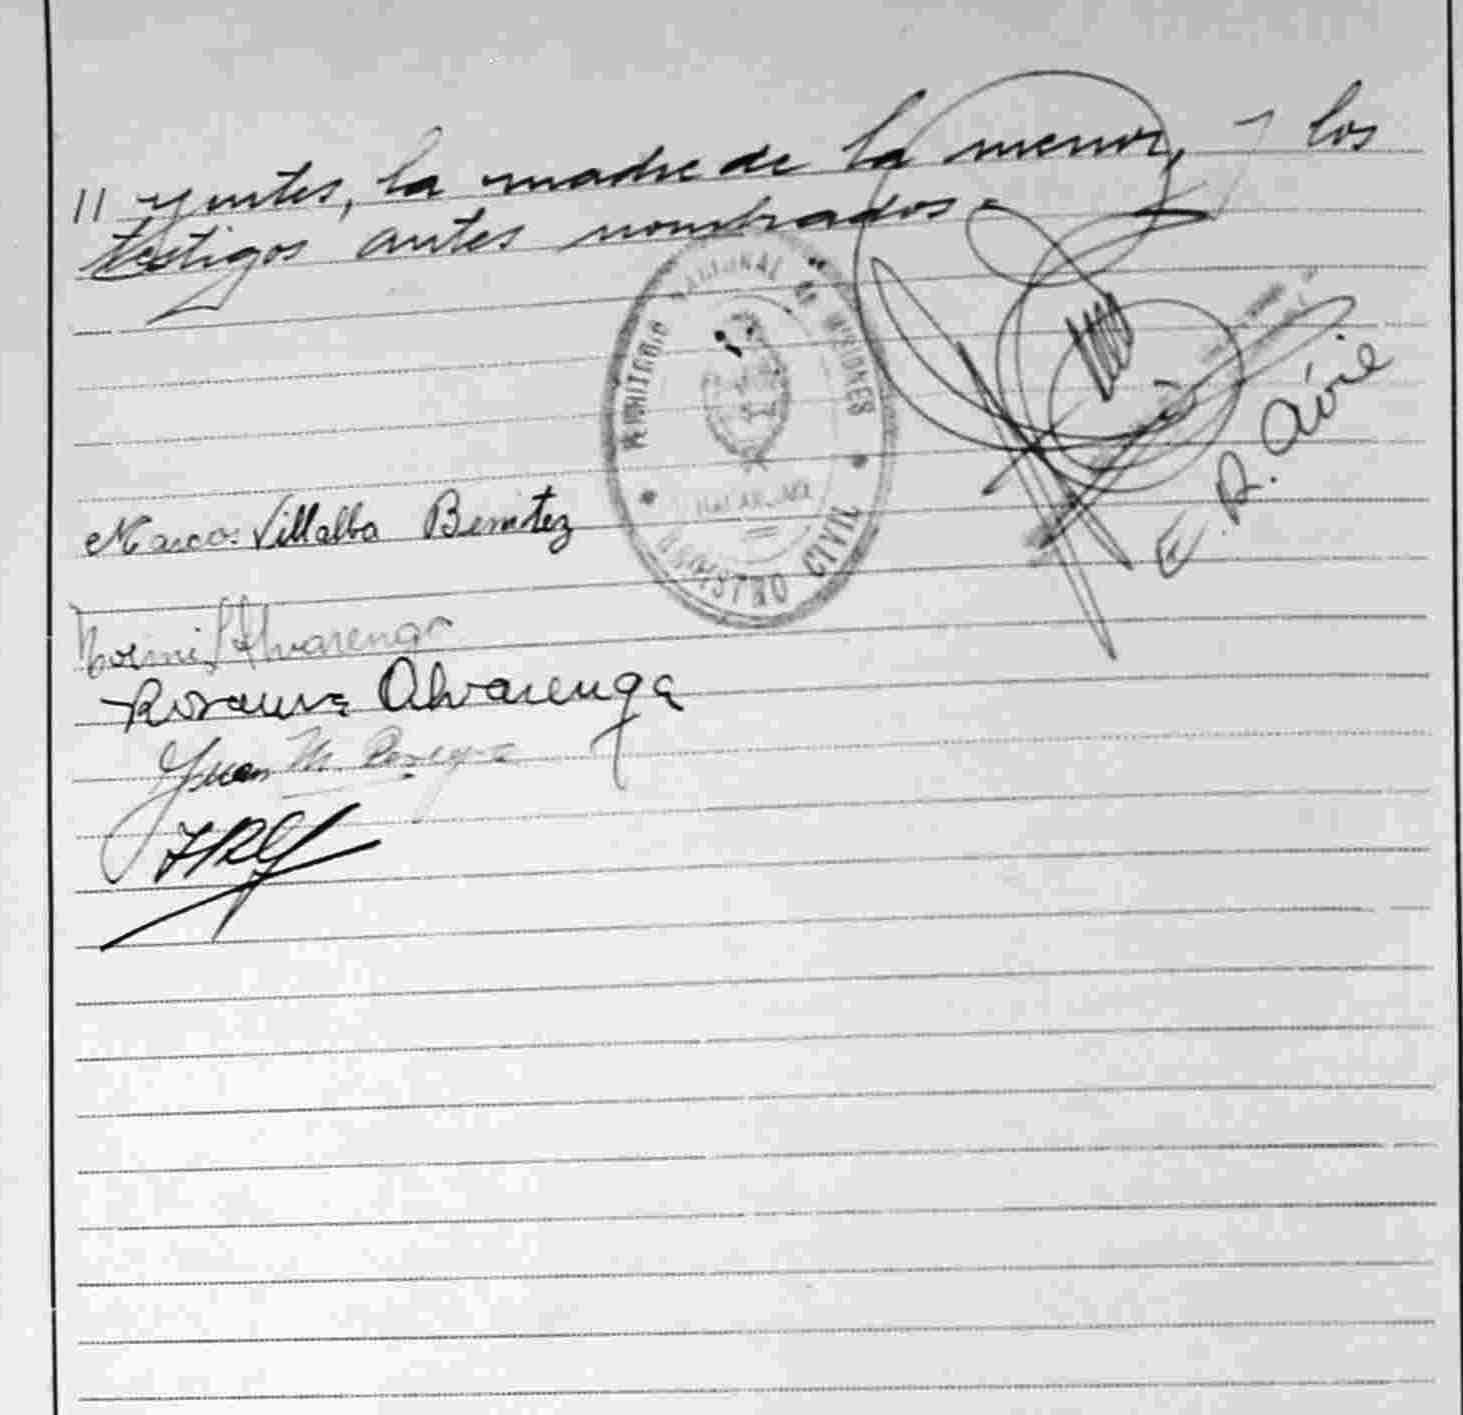 // yentes, la madre de la menor, y los
testigos antes nombrados.-
TERRITORIO NACIONAL DE MISIONES
REGISTRO CIVIL
E. A. 
Marcos Villalba Benitez
Noemi Alvarenga
Rosaura Alvarenga
Juan M.